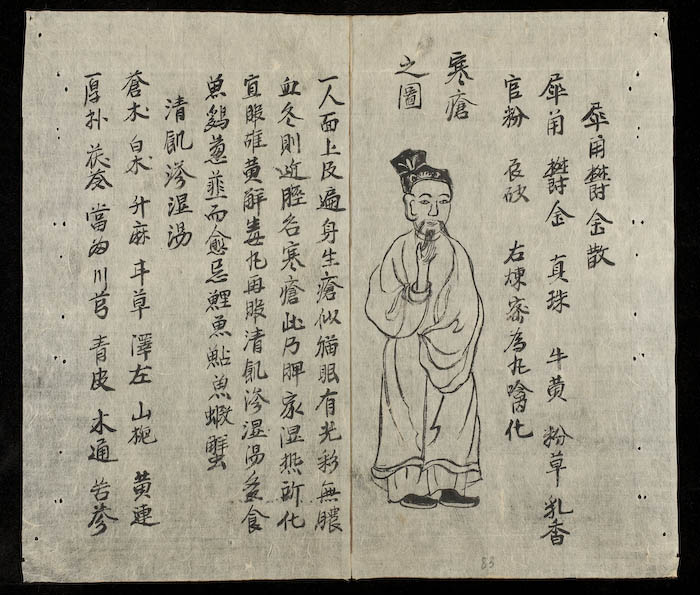 犀角鬱金散
犀角 鬱金 真珠 牛黃 粉草 乳香
官粉 辰砂 右煉密為丸噙化
寒瘡
之圖
一人面上及遍身生瘡似猫眼有光彩無膿
血冬則近脛名寒瘡此乃脾家湿热所化
宜服雄黃解毒丸再服清飢滲湿湯多食
魚鷄蔥韮而愈忌鯉魚鮎魚蝦蟹
清飢滲湿湯
蒼朮 白朮 升麻 甘草 澤左 山梔 黃連
厚朴 茯苓 當歸 川芎 青皮 木通 苦參
83